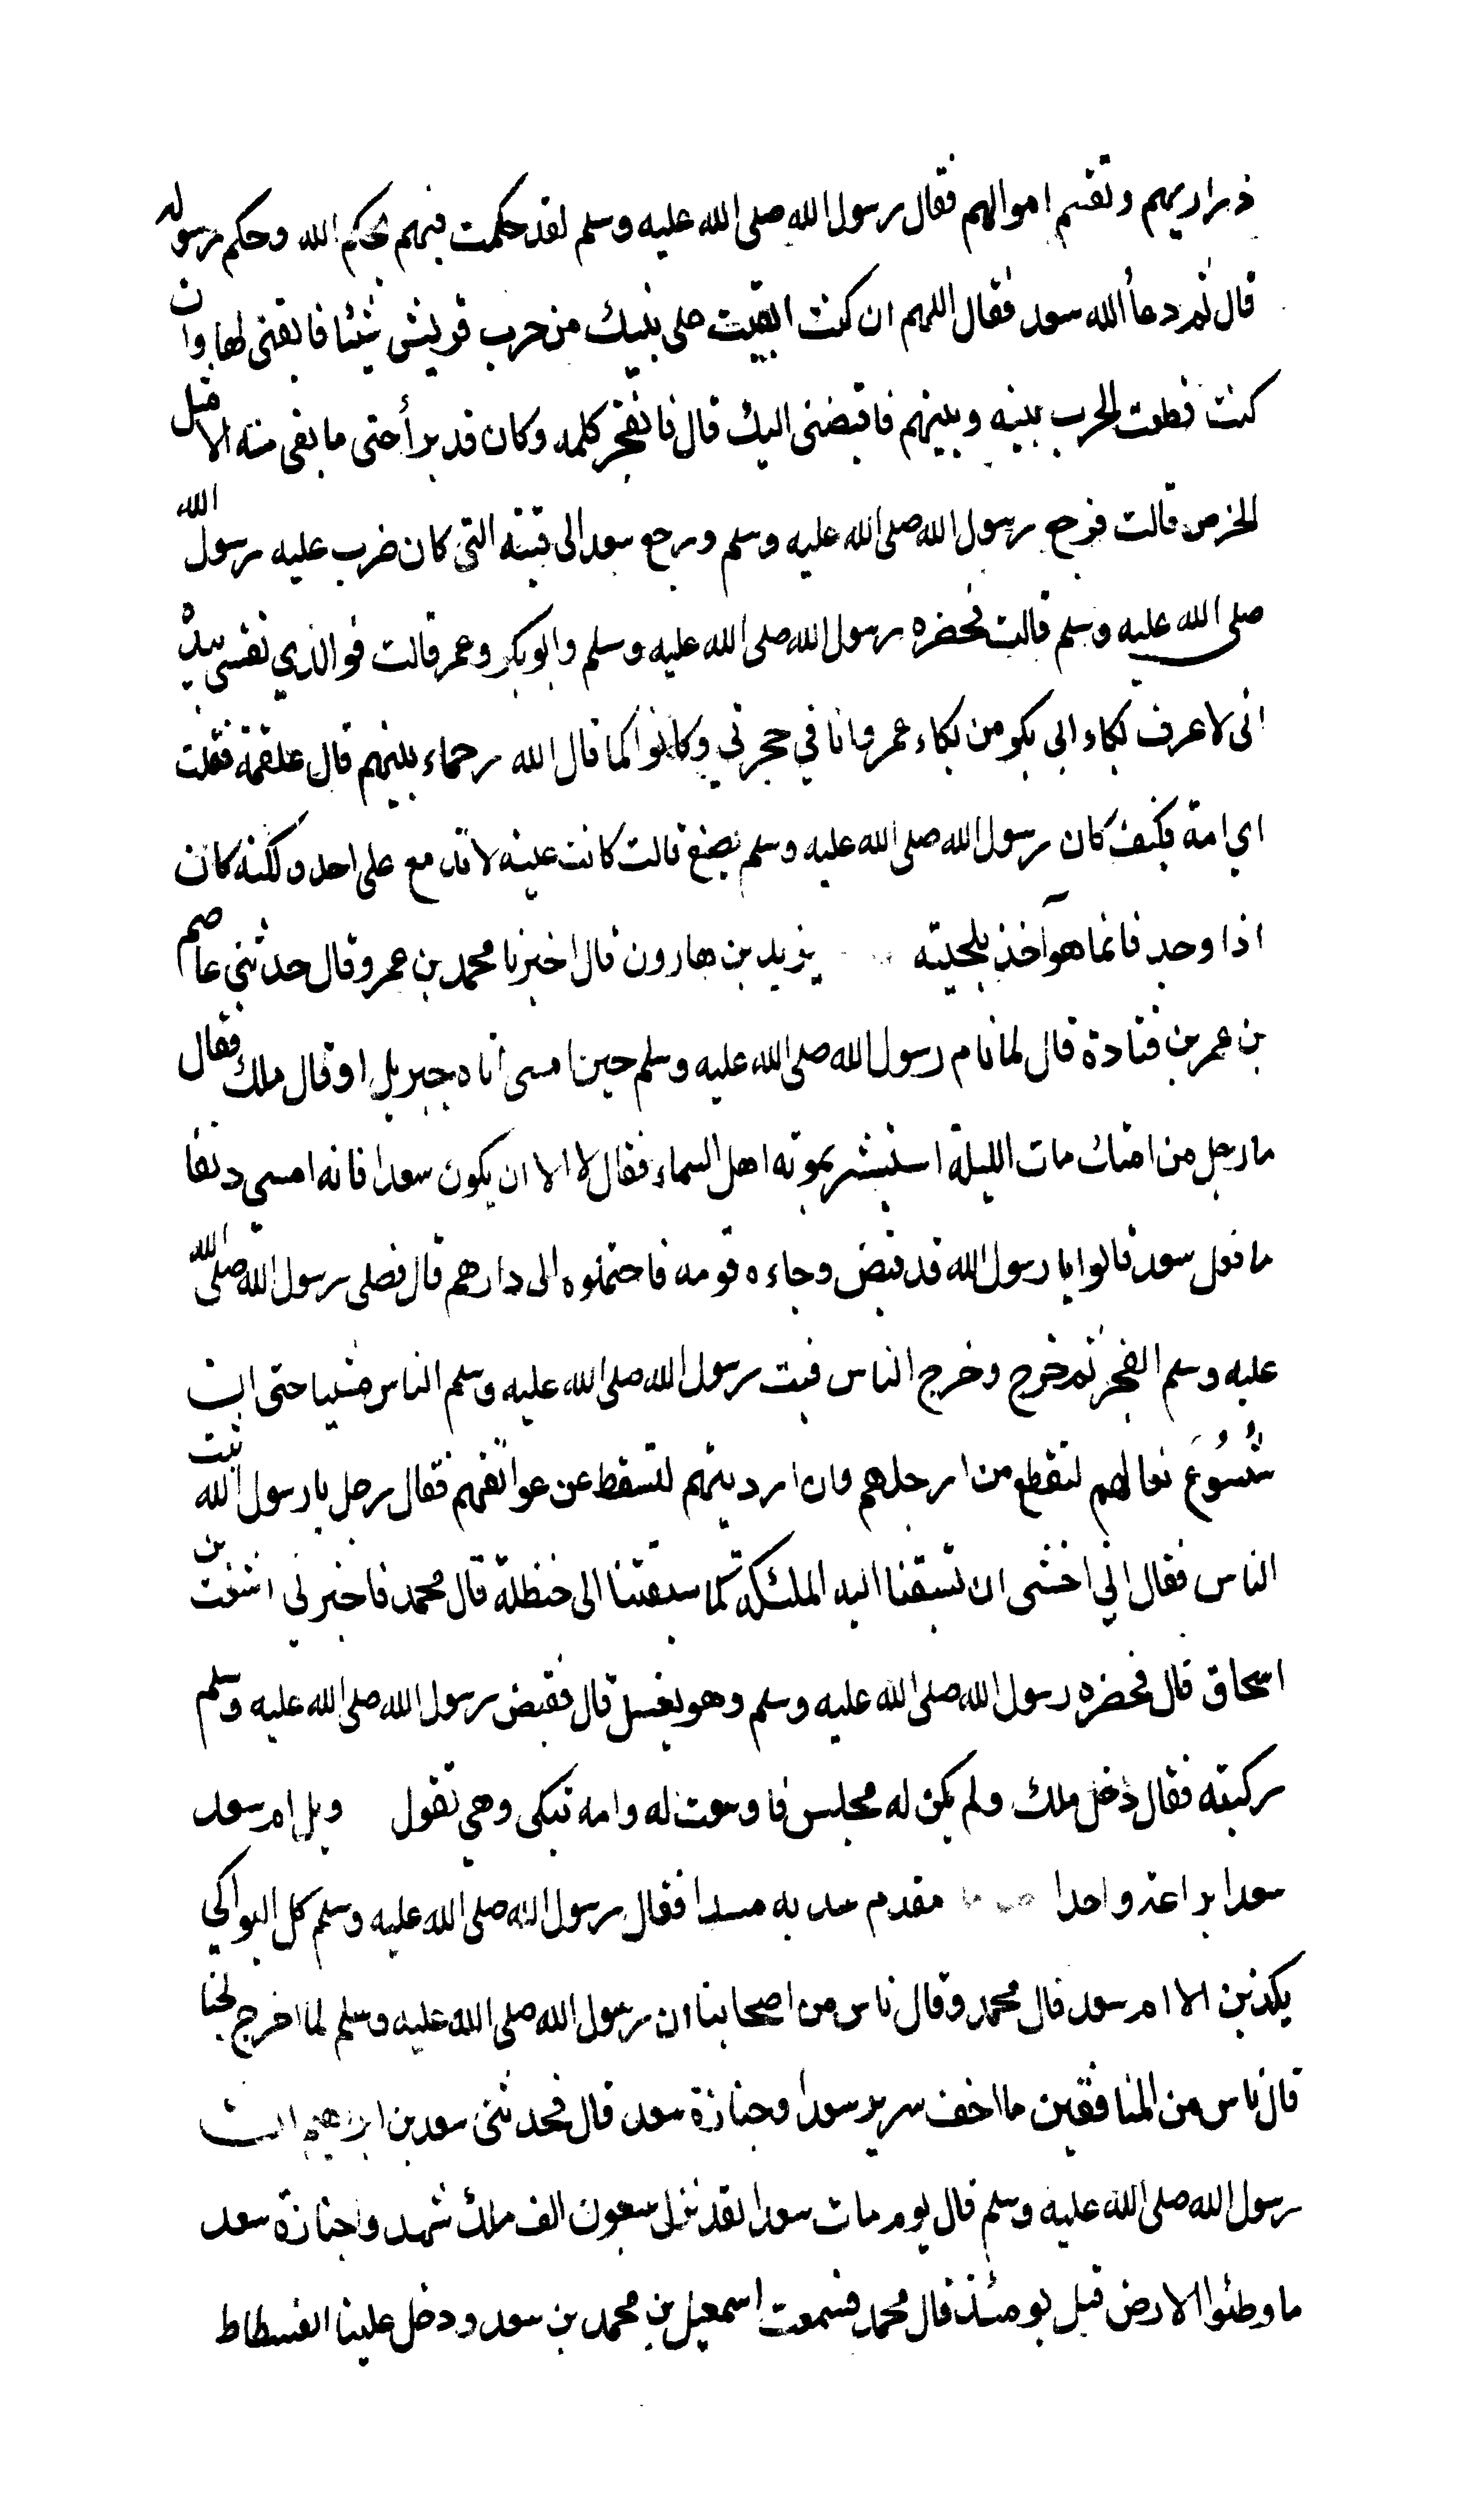 ذراريهم وتقسم اموالهم فقال رسول الله صلى الله عليه وسلم لقد حكمت فيهم بحكم الله وحكم رسوله
قال ثم دعا الله سعد فقال اللهم ان كنت ابقيت على نبيك من حرب قريش شيئا فابقني لها وان
كنت قطعت الحرب بينه وبينهم فاقبضني اليك قال فانفجر كلمه وكان قد برأ حتى ما بقى منه الا مثل
الخرص قالت فرجع رسول الله صلى الله عليه وسلم ورجع سعد الى قبته التي كان ضرب عليه رسول الله
صلى الله عليه وسلم قالت فحضره رسول الله صلى الله عليه وسلم وابو بكر وعمر قالت فوالذي نفسي بيده
انى لاعرف بكاء ابى بكر من بكاء عمر وانا في حجرتي وكانوا كما قال الله رحماء بينهم قال علقمة فقلت
اي امة فكيف كان رسول الله صلى الله عليه وسلم يصنع قالت كانت عينه لا تدمع على احد ولكنه كان
اذا وجد فانما هو آخذ بلحيته يزيد بن هارون قال اخبرنا محمد بن عمرو قال حدثني عاصم
بن عمر بن قتادة قال لما نام رسول الله صلى الله عليه وسلم حين امسى أتاه جبريل او قال ملك فقال
ما رجل من امتك مات الليلة استبشر بموته اهل السماء فقال لا الا ان يكون سعدا فانه امسى دنفا
ما فعل سعد قالوا يا رسول الله قد قبض وجاءه قومه فاحتملوه الى دارهم قال فصلى رسول الله صلى الله
عليه وسلم الفجر ثم خرج وخرج الناس فبت رسول الله صلى الله عليه وسلم الناس مشيا حتى ان
شسوع نعالهم لتقطع من ارجلهم وان ارديتهم لتسقط عن عواتقهم فقال رجل يا رسول الله بتت
الناس فقال اني اخشى ان تسبقنا اليه الملئكة كما سبقتنا الى حنظلة قال محمد فاخبرني اشعث بن
اسحاق قال فحضره رسول الله صلى الله عليه وسلم وهو يغسل قال فقبض رسول الله صلى الله عليه وسلم
ركبته فقال دخل ملك ولم يكن له مجلس فاوسعت له وامه تبكى وهي تقول ويل ام سعد
سعدا براعة واحدا مقدم سد به مسدا فقال رسول الله صلى الله عليه وسلم كل البواكي
يكذبن الا ام سعد قال محمد وقال ناس من اصحابنا ان رسول الله صلى الله عليه وسلم لما اخرج لجنا
قال ناس من المنافقين ما اخف سرير سعد او جنازة سعد قال فحدثنى سعد بن ابرهيم ان
رسول الله صلى الله عليه وسلم قال يوم مات سعد لقد نزل سبعون الف ملك شهدوا جنازة سعد
ما وطئوا الارض قبل يومئذ قال محمد فسمعت اسمعيل بن محمد بن سعد ودخل علينا الفسطاط